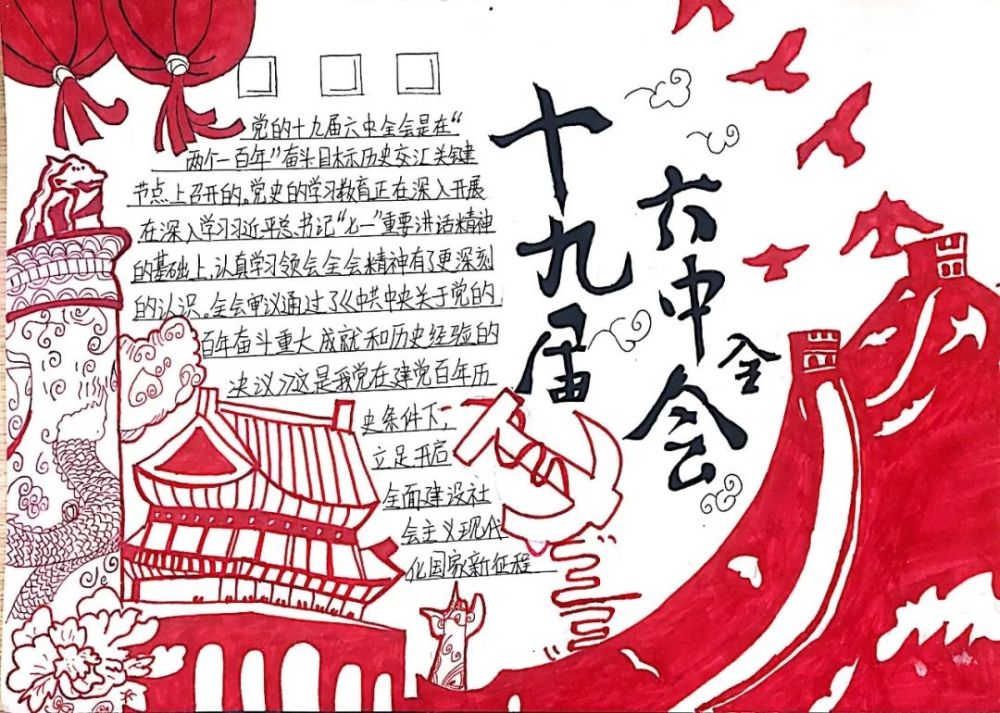 十九届
六中全会
党的十九届六中全会是在“
两个一百年”奋斗目标历史交汇关键
节点上召开的。党史的学习教育正在深入开展
在深入学习习近平总书记“七一”重要讲话精神
的基础上，认真学习领会全会精神有了更深刻
的认识。全会审议通过了《中共中央关于党的
百年奋斗重大成就和历史经验的
决议》这是我党在建党百年历
史条件下，
立足开启
全面建设社
会主义现代
化国家新征程